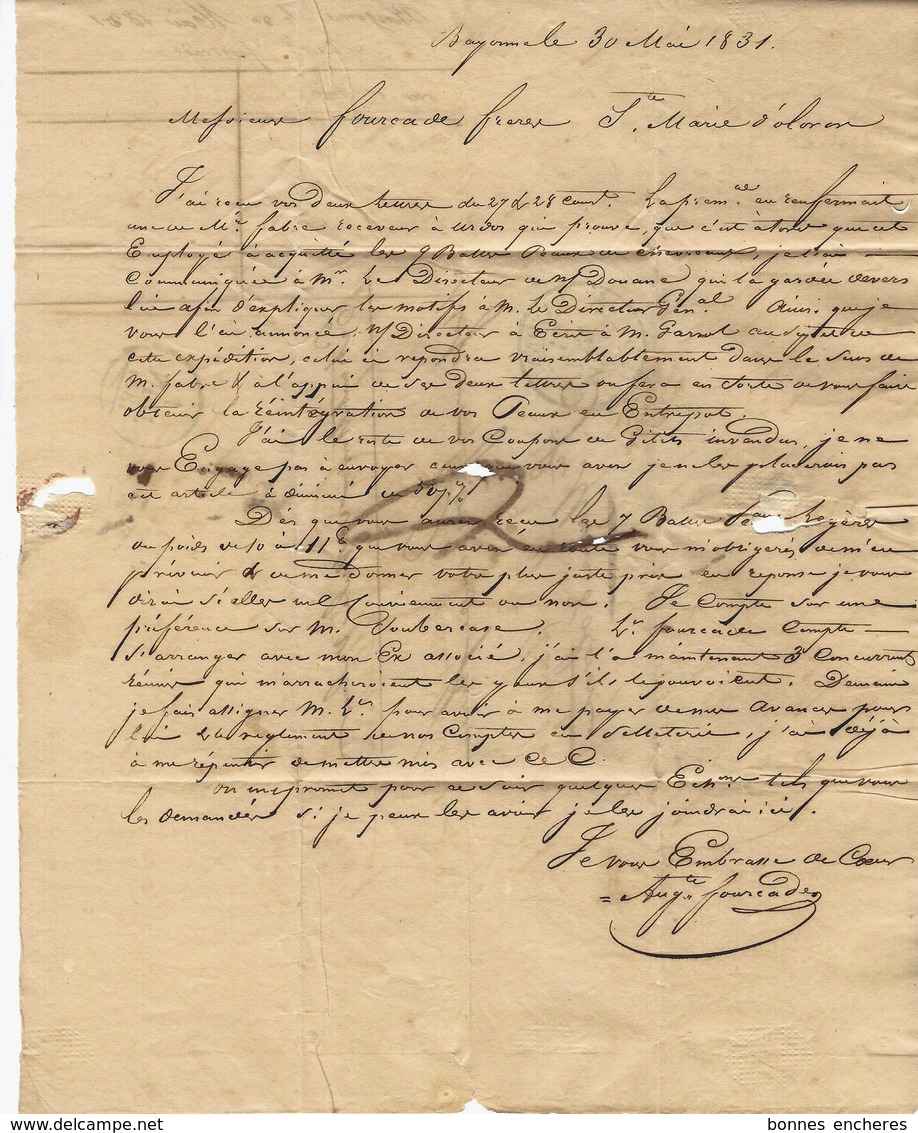 Bayonne le 30 Mai 1831.
Messieurs fourcade freres Ste. Marie d'oloron
J'ai recu vos deux lettres du 27 & 28 Court. La premre. en renfermait
une de Mr. fabre receveur à urdos qui prouve, que c'est à tort que cet
Employé à acquitté les 9 Balles Peaux de chevreaux, je l'ai —
Communiquée à Mr. Le Directeur de n/ Douane qui la gardée devers
lui afin d'expliquer les motifs à M. le Directeur Génal. Ainsi que je
vous l'ai annoncé n/ Directeur à Ecrit à M. au sujet de
cette expédition, celui ci repondra vraisemblablement dans le sens de
M. fabre & à l'appui de ses deux lettres on fera en sorte de vous faire
obtenir la réintégration de vos Peaux en Entrepot.
J'ai le reste de vos Coupons de invendus, je ne
vous Engage pas à envoyer ceux que vous avez je ne les placerais pas
cet article à diminué de 50 p%
Dès que vous aurez recu les 7 Balles Peaux Legères
du poids de 10 à 11 que vous avez en route vous m'obligerés de m'en
prévenir & de me donner votre plus juste prix en reponse je vous
dirai si elles me Conviennent ou non. Je Compte sur une
préférence sur M. Loubercase. Ls. fourcade Compte —
s'arranger avec mon Ex associé, j'ai là maintenant 3 Concurrents
réunis qui m'arracheroient les yeux s'ils le pouvoient. Demain
je fais assigner M. Ls. pour avoir à me payer de mes avances pour
lui & la reglement de nos Comptes en Selleterie, j'ai déjà
à me répentir de m'etre mis avec ce C.
on m'a promit pour ce soir quelques Echons. tels que vous
les demandés si je peux les avoir je les joindrai ici.
Je vous Embrasse de Coeur
= Augte. fourcade
bonnes encheres